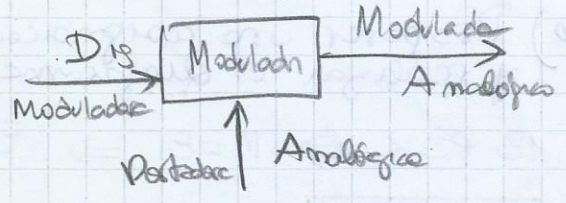 Dig
Moduladora
Modulador
Modulada
Analógica
Portadora
Analógica